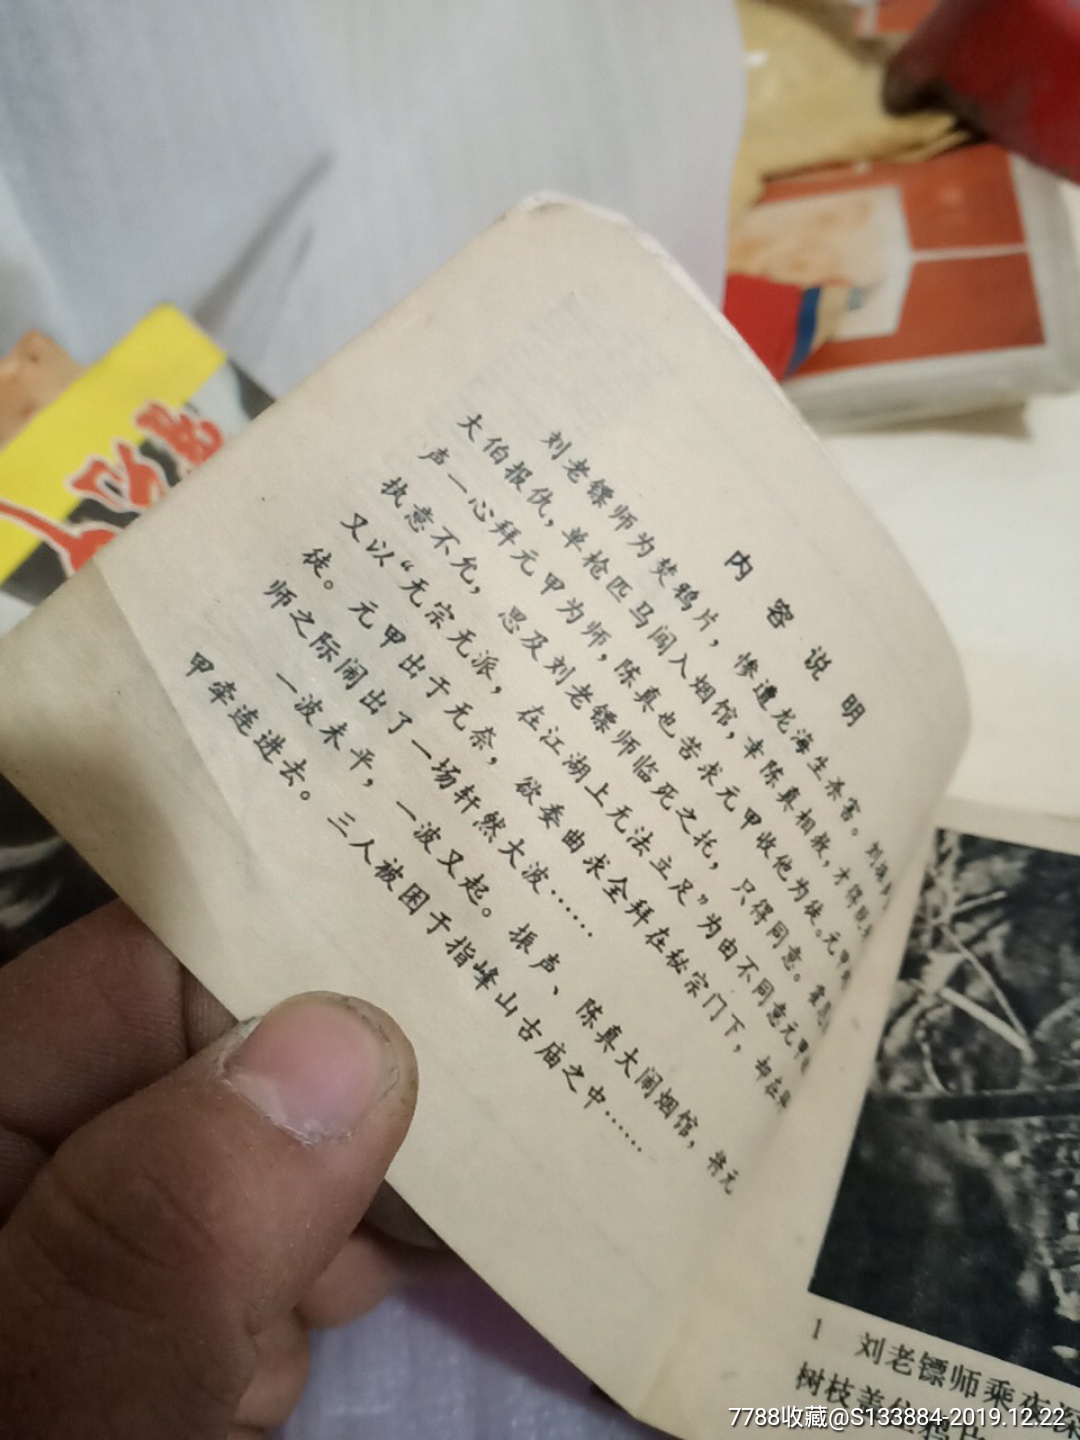 内容说明
刘老镖师为焚鸦片，惨遭龙海生杀害。刘振
大伯报仇，单枪匹马闯入烟馆，幸陈真相救，才得脱
声一心拜元甲为师，陈真也苦求元甲收他为徒。元甲
执意不允，思及刘老镖师临死之托，只得同意。霍恩
又以“无宗无派，在江湖上无法立足”为由不同意元甲
徒。元甲出于无奈，欲委曲求全拜在秘宗门下，却在
师之际闹出了一场轩然大波……
一波未平，一波又起。振声、陈真大闹烟馆，将元
甲牵连进去。三人被困于指峰山古庙之中……
1 刘老镖师乘夜深
树枝盖住鸦片
7788收藏@S133884-2019.12.22